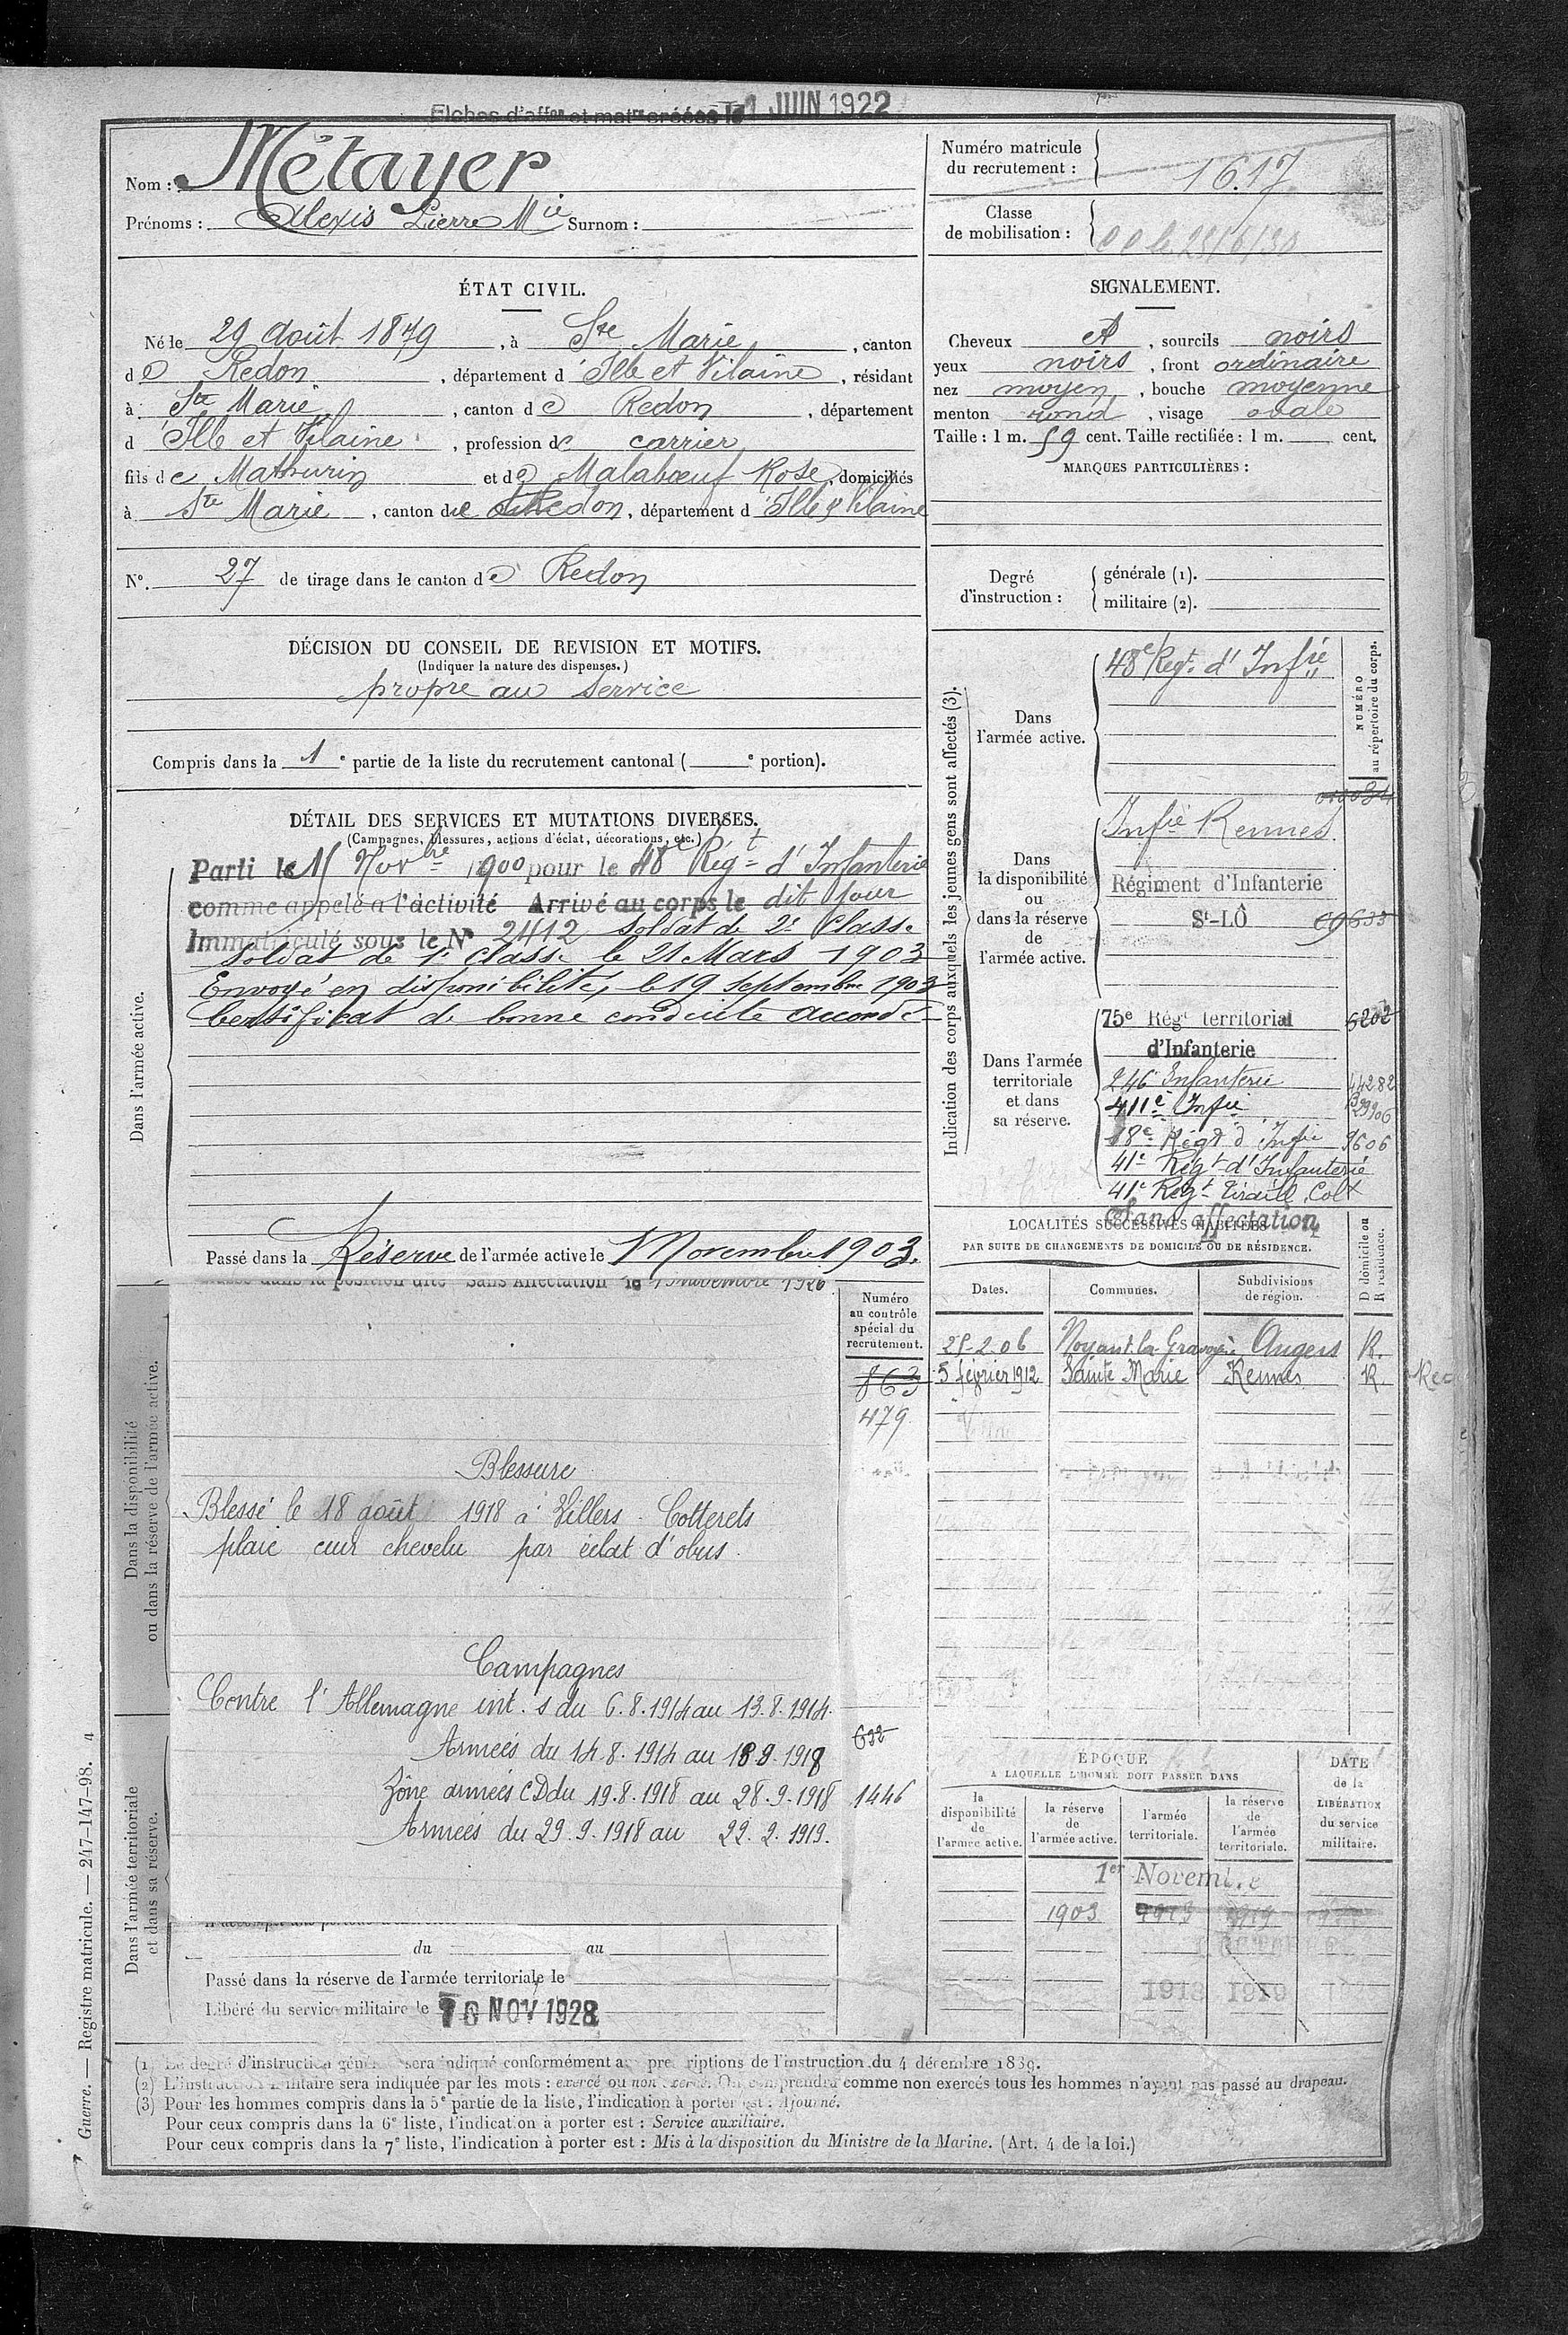 Fiches d'affon et matre créées le 1 JUIN 1922
Nom : Métayer
Prénoms : Alexis Pierre Mie Surnom :
Numéro matricule
du recrutement : 1617
Classe
de mobilisation :
ÉTAT CIVIL.
Né le 29 août 1879, à Ste Marie, canton
de Redon, département d'Ille et Vilaine, résidant
à Ste Marie, canton de Redon, département
d'Ille et Vilaine, profession de carrier
fils de Mathurin et de Malabœuf Rose, domiciliés
à Ste Marie, canton de Redon, département d'Ille & Vilaine
No. 27 de tirage dans le canton de Redon
SIGNALEMENT.
Cheveux et, sourcils noirs
yeux noirs, front ordinaire
nez moyen, bouche moyenne
menton rond, visage ovale
Taille : 1 m. 59 cent. Taille rectifiée : 1 m. cent.
MARQUES PARTICULIÈRES :
Degré
d'instruction :
générale (1).
militaire (2).
DÉCISION DU CONSEIL DE REVISION ET MOTIFS.
(Indiquer la nature des dispenses.)
propre au service
Compris dans la 1e partie de la liste du recrutement cantonal ( e portion).
DÉTAIL DES SERVICES ET MUTATIONS DIVERSES.
(Campagnes, blessures, actions d'éclat, décorations, etc.)
Dans l'armée active.
Parti le 15 Novbre 1900 pour le 48e Régt d'Infanterie
comme appelé à l'activité Arrivé au corps le dit jour
Immatriculé sous le No 2412 Soldat de 2e Classe
Soldat de 1e Classe le 21 Mars 1903
Envoyé en disponibilité, le 19 septembre 1903
Certificat de bonne conduite accordé
Passé dans la Réserve de l'armée active le 1 Novembre 1903.
Indication des corps auxquels les jeunes gens sont affectés (3).
NUMÉRO
au répertoire du corps.
Dans
l'armée active.
48e Regt. d'Infrie
Dans
la disponibilité
ou
dans la réserve
de
l'armée active.
Infie Rennes.
Régiment d'Infanterie
St-LÔ
Dans l'armée
territoriale
et dans
sa réserve.
75e Régt territorial 5202
d'Infanterie
246e Infanterie 44282
411e Infie
18e Régt d'Infie 9606
41e Régt d'Infanterie
41e Régt Tiraill. Colx
Sans affectation
LOCALITÉS SUCCESSIVES HABITÉES
PAR SUITE DE CHANGEMENTS DE DOMICILE OU DE RÉSIDENCE.
D domicile ou
R résidence.
Dates. Communes. Subdivisions
de région.
25-2.06 Noyant-la-Gravoyère Angers R.
5 février 1912 Sainte Marie Rennes R.
Dans la disponibilité
ou dans la réserve de l'armée active.
Passé dans la position dite Sans Affectation le 1 Novembre 1926
Numéro
au contrôle
spécial du
recrutement.
863
479
Blessure
Blessé le 18 août 1918 à Villers-Cotterets
plaie cuir chevelu par éclat d'obus.
Campagnes
Contre l'Allemagne int. s du 6.8.1914 au 13.8.1914.
Armées du 14.8.1914 au 18.8.1918
632
Zône armées CD du 19.8.1918 au 28.9.1918
1446
Armées du 29.9.1918 au 22.2.1919.
Dans l'armée territoriale
et dans sa réserve.
du au
Passé dans la réserve de l'armée territoriale le
Libéré du service militaire le 10 NOV 1928
ÉPOQUE
A LAQUELLE L'HOMME DOIT PASSER DANS
DATE
de la
LIBÉRATION
du service
militaire.
la
disponibilité
de
l'armée active.
la réserve
de
l'armée active.
l'armée
territoriale.
la réserve
de
l'armée
territoriale.
1er Novembre
1903 1913 1919
1918 1929
(1) Le degré d'instruction générale sera indiqué conformément aux prescriptions de l'instruction du 4 décembre 1889.
(2) L'instruction militaire sera indiquée par les mots : exercé ou non exercé. On comprendra comme non exercés tous les hommes n'ayant pas passé au drapeau.
(3) Pour les hommes compris dans la 5e partie de la liste, l'indication à porter est : Ajourné.
Pour ceux compris dans la 6e liste, l'indication à porter est : Service auxiliaire.
Pour ceux compris dans la 7e liste, l'indication à porter est : Mis à la disposition du Ministre de la Marine. (Art. 4 de la loi.)
Guerre. — Registre matricule. — 247-147-98.